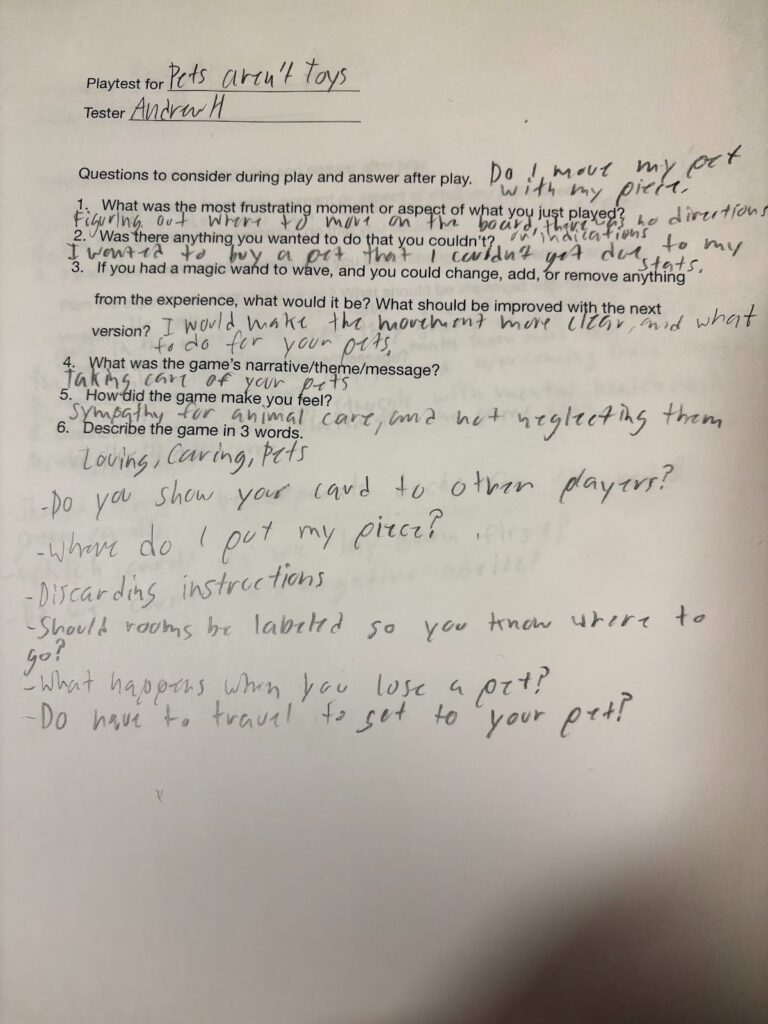 Playtest for Pets aren't Toys
Tester Andrew H
Questions to consider during play and answer after play. Do I move my pet
with my piece.
1. What was the most frustrating moment or aspect of what you just played?
Figuring out where to move on the board, there is no directions
or indications
2. Was there anything you wanted to do that you couldn't?
I wanted to buy a pet that I couldn't get due to my
stats.
3. If you had a magic wand to wave, and you could change, add, or remove anything
from the experience, what would it be? What should be improved with the next
version? I would make the movement more clear, and what
to do for your pets.
4. What was the game's narrative/theme/message?
taking care of your pets
5. How did the game make you feel?
Sympathy for animal care, and not neglecting them
6. Describe the game in 3 words.
Loving, Caring, Pets
-Do you show your card to other players?
-Where do I put my piece?
-Discarding instructions
-Should rooms be labeled so you know where to
go?
-What happens when you lose a pet?
-Do have to travel to get to your pet?